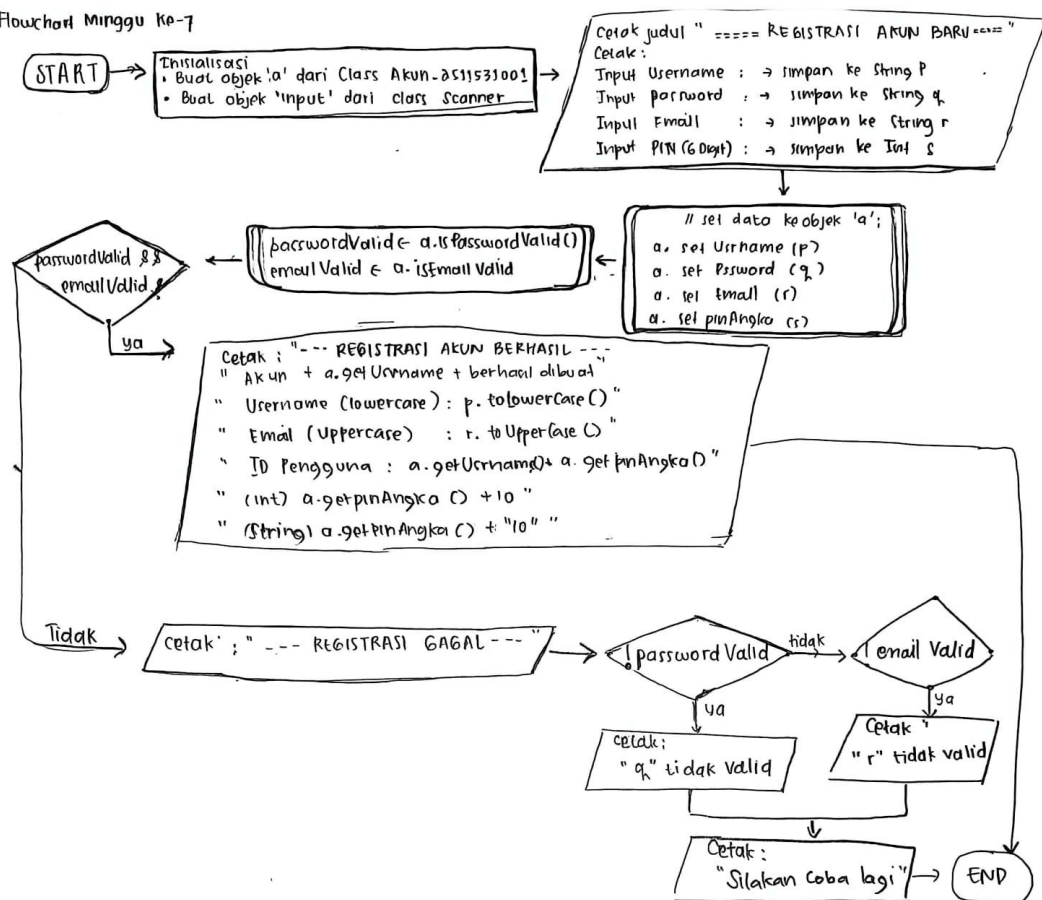 Flowchart Minggu Ke-7
START
Inisialisasi
• Buat objek 'a' dari Class Akun_2511531001
• Buat objek 'input' dari class Scanner
Cetak judul " ===== REGISTRASI AKUN BARU ===== "
Cetak :
Input Username : → simpan ke String P
Input password : → simpan ke String q
Input Email : → simpan ke String r
Input PIN (6 Digit) : → simpan ke Int s
// set data ke objek 'a';
a. set Usrname (p)
a. set Pssword (q)
a. set Email (r)
a. set pinAngka (s)
passwordValid ← a.isPasswordValid()
email Valid ← a. isEmail Valid
passwordValid &&
email Valid
ya
Cetak : "--- REGISTRASI AKUN BERHASIL ---
" Akun + a.getUsrname + berhasil dibuat "
" Username (lowercase) : p. toLowerCase () "
" Email (Uppercase) : r. to UpperCase () "
" ID Pengguna : a.getUsrname()+ a. get pinAngka() "
" (int) a.getpinAngka () + 10 "
" (String) a.getPinAngka () + "10" "
Tidak
Cetak : " --- REGISTRASI GAGAL --- "
! password Valid
tidak
! email Valid
ya
ya
cetak :
" q " tidak valid
Cetak "
" r " tidak valid
Cetak :
"Silakan Coba lagi"
END